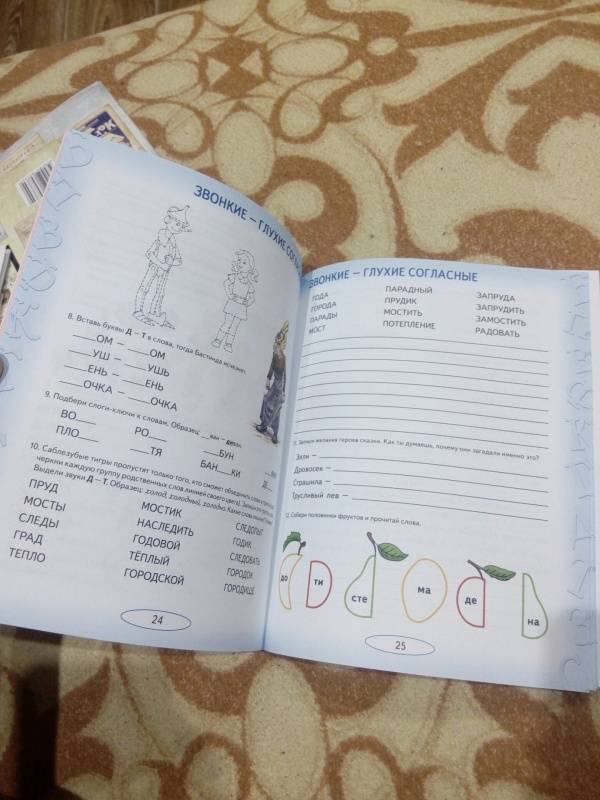 ЗВОНКИЕ – ГЛУХИЕ СОГЛА
8. Вставь буквы Д – Т в слова, тогда Бастинда исчезнет.
___ОМ – ___ОМ
___УШ – ___УШЬ
___ЕНЬ – ___ЕНЬ
___ОЧКА – ___ОЧКА
9. Подбери слоги-ключи к словам. Образец: __ван – диван.
ВО___ РО___ ___БУН
ПЛО___ ___ТЯ БАН___КИ ДЕ
10. Саблезубые тигры пропустят только того, кто сможет объединить слова в группы
черкни каждую группу родственных слов линией своего цвета).
Выдели звуки Д – Т. Образец: холод, холодный, холодно.
ПРУД МОСТИК СЛЕДОПЫТ
МОСТЫ НАСЛЕДИТЬ ГОДИК
СЛЕДЫ ГОДОВОЙ СЛЕДОВАТЬ
ГРАД ТЁПЛЫЙ ГОРОДОК
ТЕПЛО ГОРОДСКОЙ ГОРОДИЩЕ
24
ЗВОНКИЕ – ГЛУХИЕ СОГЛАСНЫЕ
ГОДА ПАРАДНЫЙ ЗАПРУДА
ГОРОДА ПРУДИК ЗАПРУДИТЬ
ПАРАДЫ МОСТИТЬ ЗАМОСТИТЬ
МОСТ ПОТЕПЛЕНИЕ РАДОВАТЬ
Запиши желания героев сказки. Как ты думаешь, почему они загадали именно это?
Элли –
Дровосек –
Страшила –
Трусливый лев –
12. Собери половинки фруктов и прочитай слова.
до ти сте ма де на
25